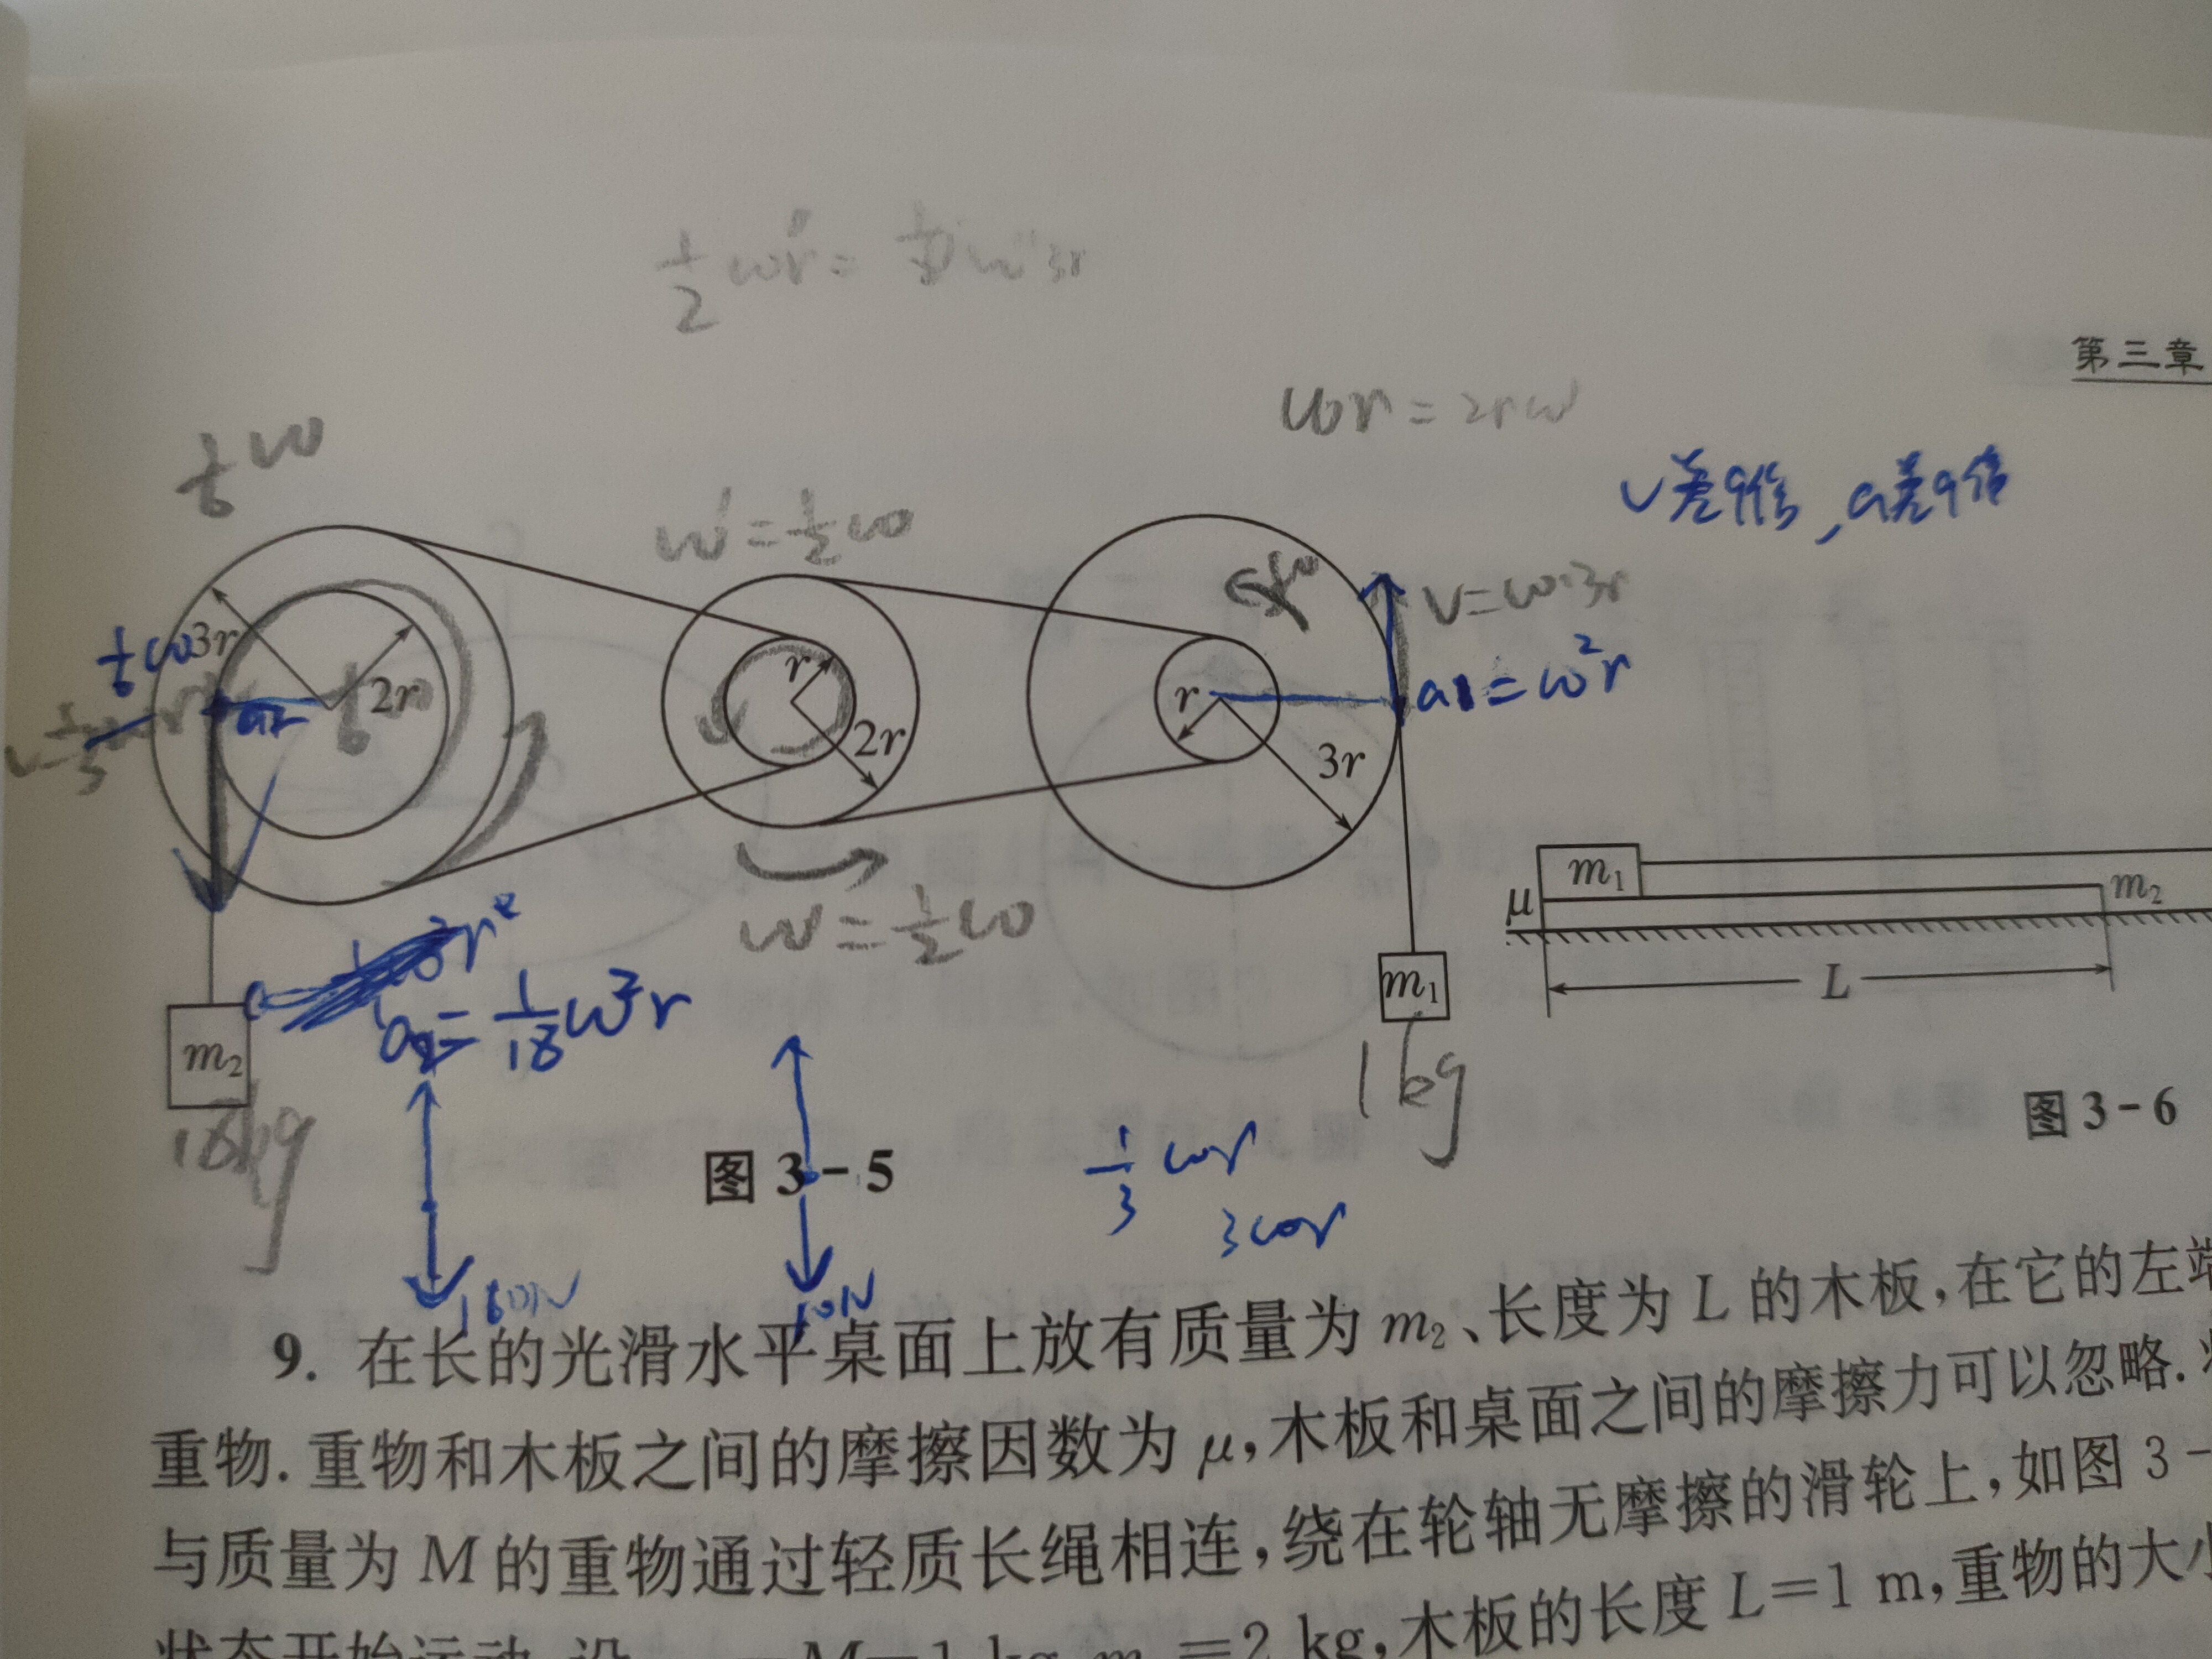 ½ωr=
第三章
ωr=2rω
v差9倍,a差9倍
ω'=½ω
v=ω·3r
3r
2r
r
2r
r
a1=ω²r
a2
3r
m₁
m₂
μ
L
ω'=½ω
m₁
1kg
a2=1/18ω²r
m₂
18kg
图 3-6
图 3-5
⅓ωr
3ωr
180N
10N
9. 在长的光滑水平桌面上放有质量为 m₂、长度为 L 的木板,在它的左端
重物. 重物和木板之间的摩擦因数为 μ,木板和桌面之间的摩擦力可以忽略.
与质量为 M 的重物通过轻质长绳相连,绕在轮轴无摩擦的滑轮上,如图 3-
状态开始运动. 设 M=1 kg, m =2 kg,木板的长度 L=1 m,重物的大小